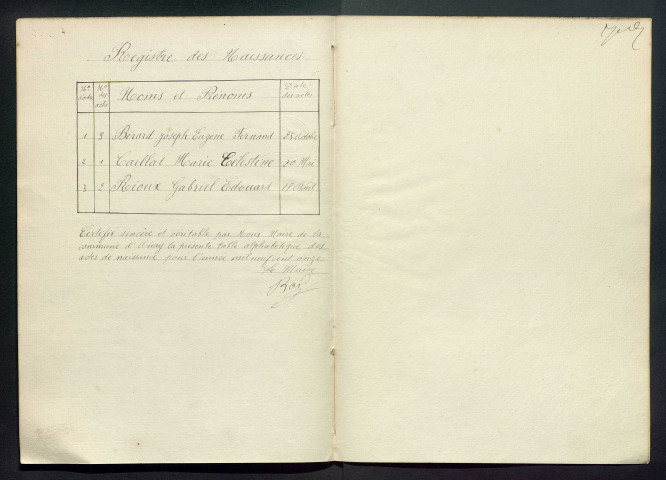 Registre des Naissances
Nos
d'ordre
Nos
des
actes
Noms et Prénoms
Date
des actes
1 3 Bérard Joseph Eugène Fernand 25 Octobre
2 1 Taillat Marie Célestine 20 Mai
3 2 Réoux Gabriel Edouard 18 Août
Certifié sincère et véritable par Nous Maire de la
commune d' la présente table alphabétique des
actes de naissance pour l'année mil neuf cent onze
Le Maire